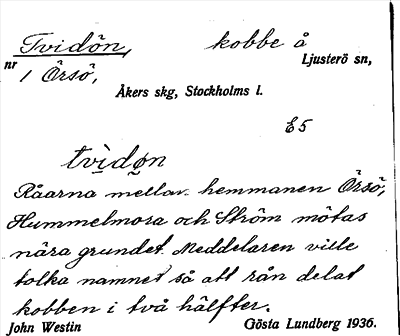 Tvidön, kobbe å
nr 1 Örsö, Ljusterö sn,
Åkers skg, Stockholms l.
E5
tvidøn
Råarna mellan hemmanen Örsö,
Hummelmora och Ström mötas
nära grundet. Meddelaren ville
tolka namnet så att rån delat
kobben i två hälfter.
John Westin Gösta Lundberg 1936.